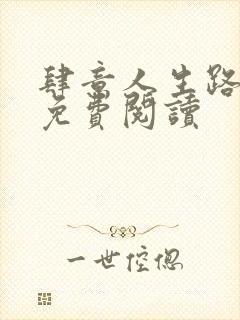 肆意人生路
免費閱讀
一世倥偬